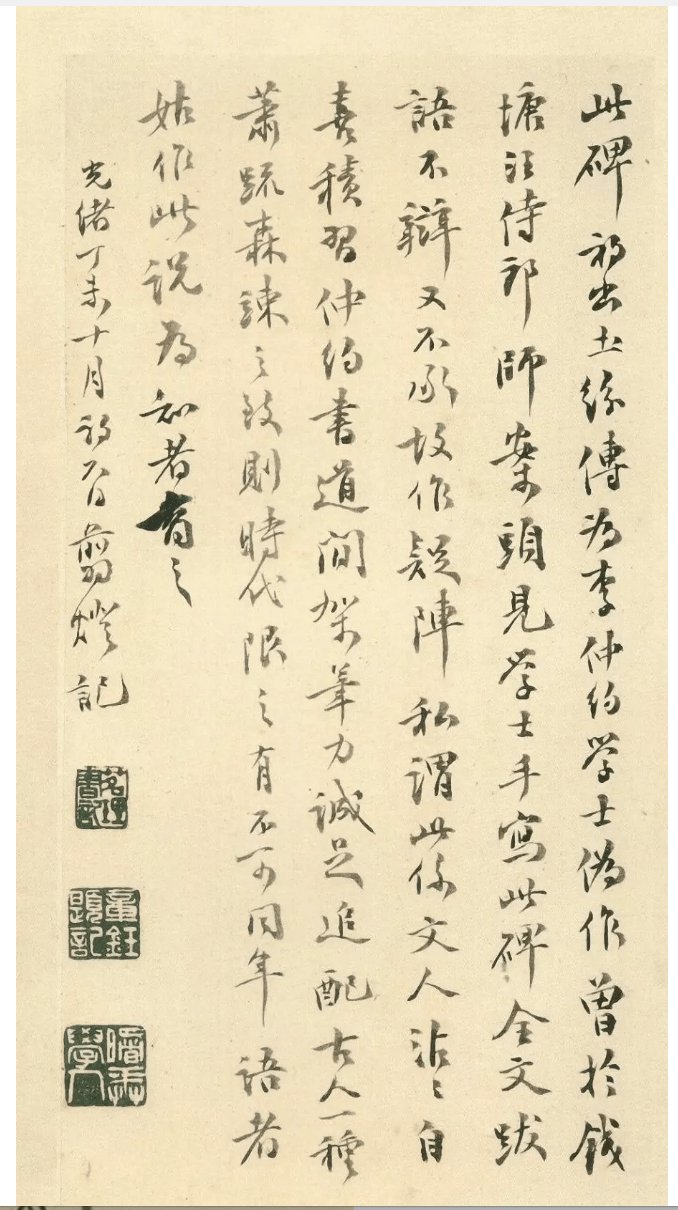 此碑初出土綠傳為李仲約學士偽作曾於錢
塘汪侍郎師案頭見學士手寫此碑全文跋
語不辯又不承故作疑陣私謂此係文人沾沾自
喜積習仲約書道間架筆力誠足追配古人一種
蕭疏森竦之致則時代限之有不可同年語者
姑作此說為知者質之
光緒丁未十月初六日翦燈記
茗理書記
章鈺題記
曙戒學人